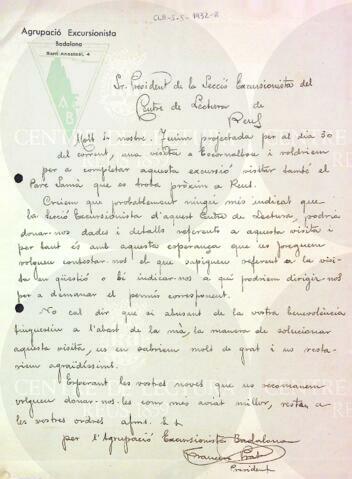 CLR-S-5-1932-8
Agrupació Excursionista
Badalona
Sant Anastasi, 4
A E B
Sr. President de la Secció Excursionista del
Centre de Lectura de
Reus
Molt Sr. nostre: Tenim projectada per al dia 30
del corrent, una visita a Escornalbou i voldriem
per a completar aquesta excursió visitar també el
Parc Samà que es troba pròxim a Reus.
Creiem que probablement ningú més indicat que
la Secció Excursionista d'aquest Centre de Lectura, podria
donar-nos dades i detalls referents a aquesta visita i
per tant és amb aquesta esperança que us preguem
volgueu contestar-nos el que sapigueu referent a la visi-
ta en qüestió o bé indicar-nos a qui podriem dirigir-nos
per a demanar el permís corresponent.
No cal dir que si abusant de la vostra benevolència
tinguessiu a l'abast de la mà, la manera de solucionar
aquesta visita, us en sabriem molt de grat i us resta-
riem agraidissims.
Esperant les vostres noves que us recomanem
vulgueu donar-nos-les com més aviat millor, restem a
les vostres ordres afms. s. s.
per l'Agrupació Excursionista Badalona
Francesc Prat
President